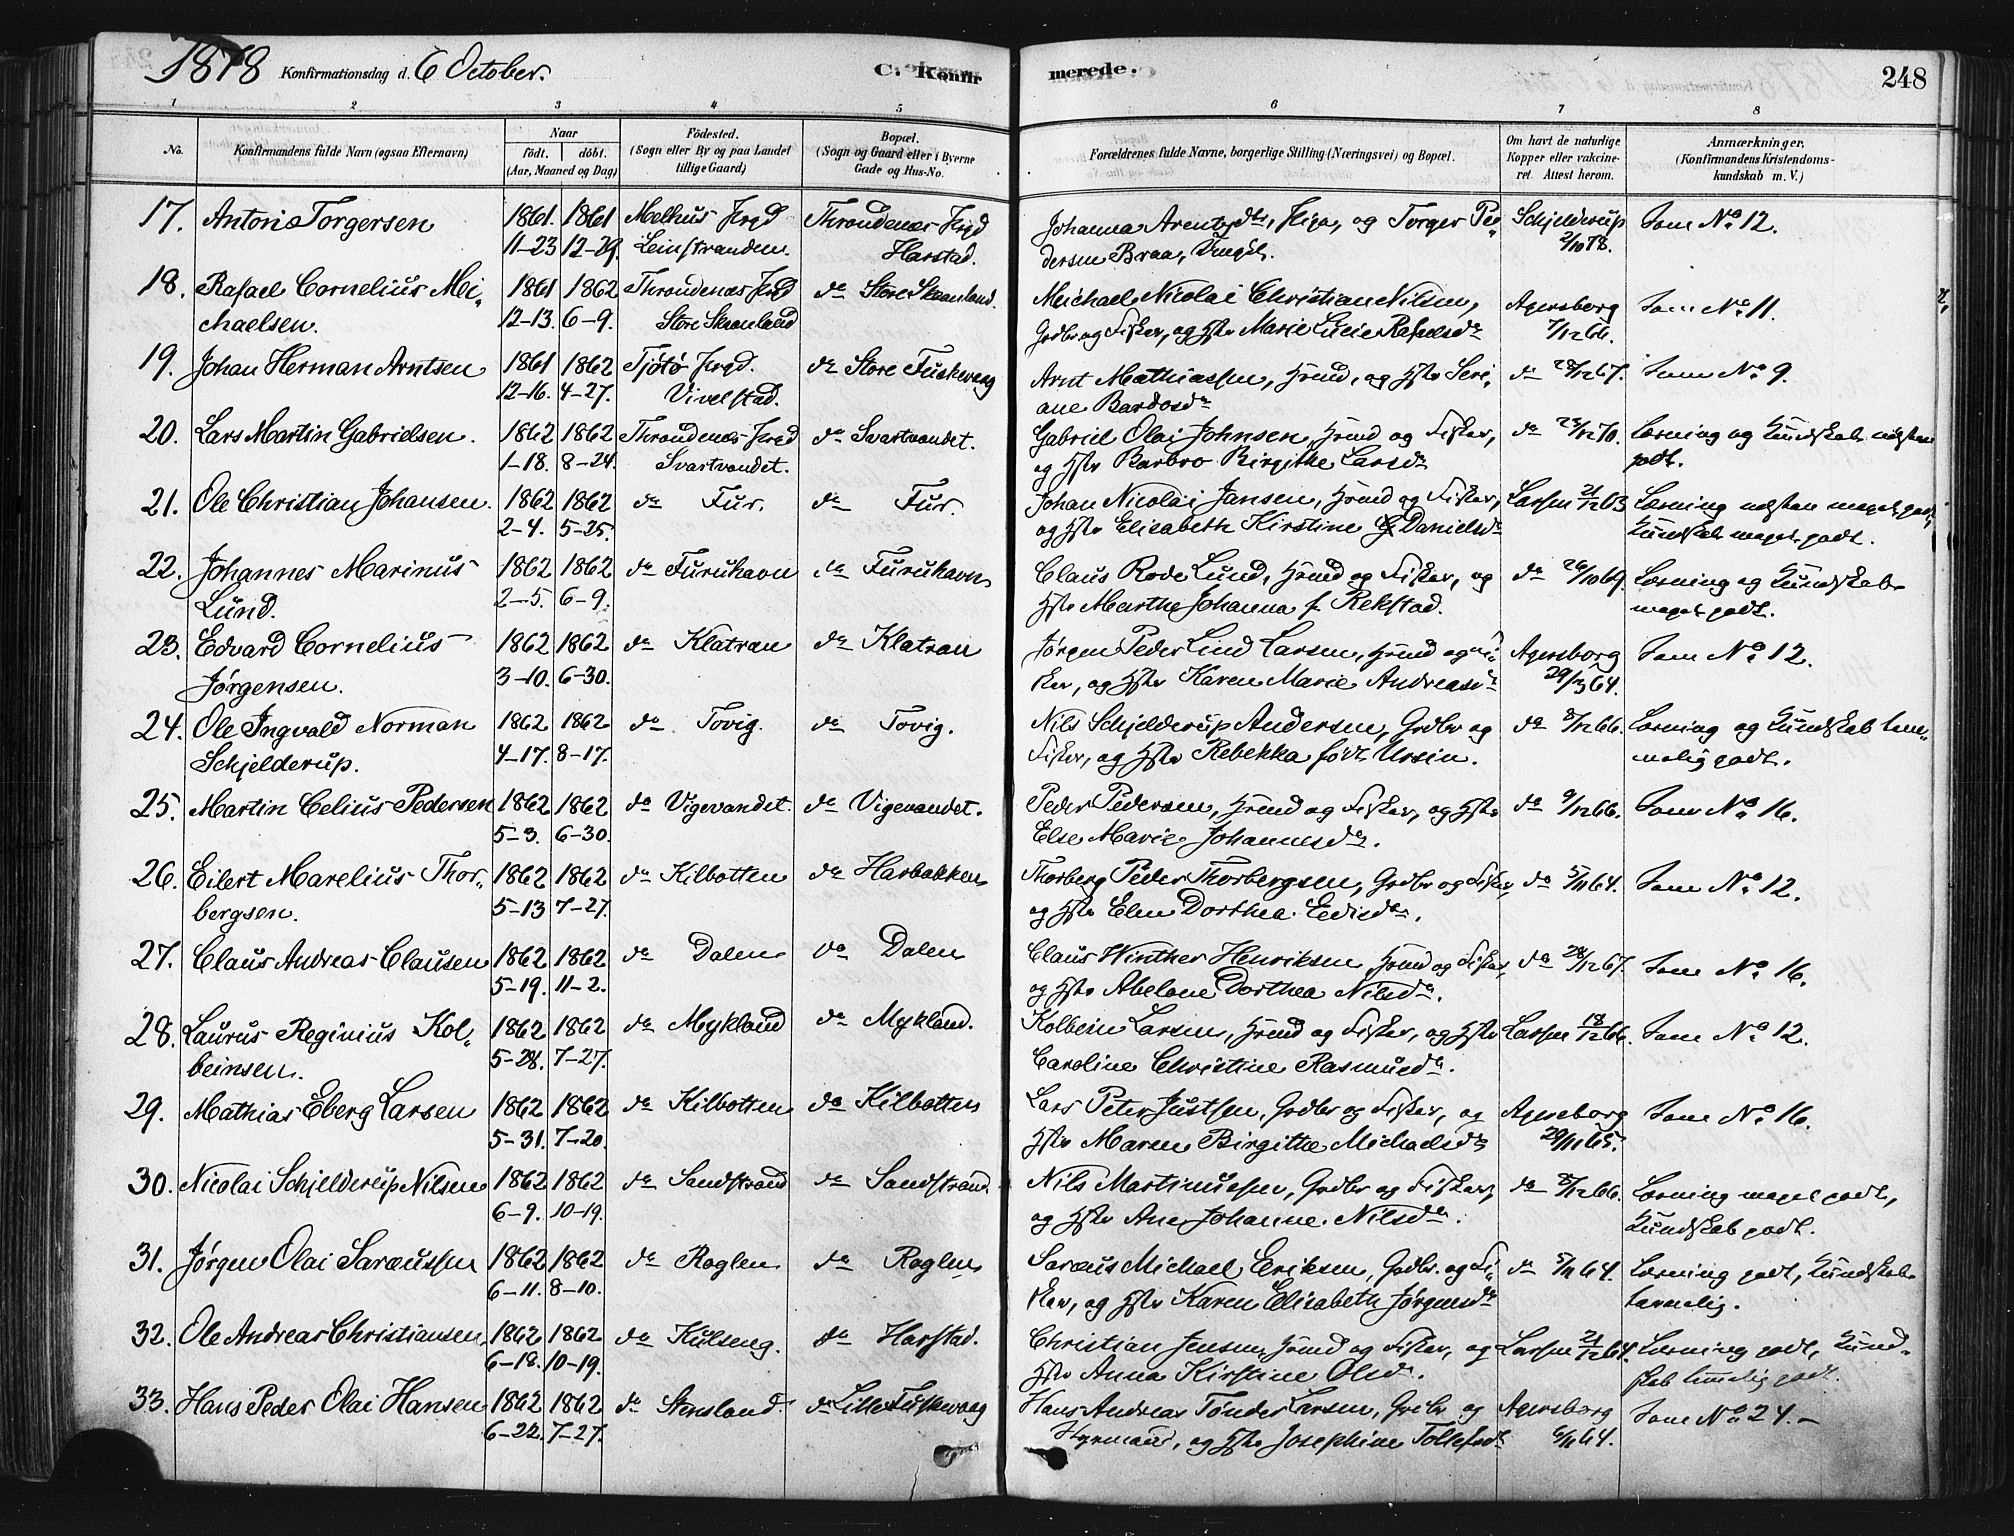 1878 Konfirmationsdag d. 6 October. C. Konfir merede. 248
1 2 3 4 5 6 7 8
No. Konfirmandens fulde Navn (ogsaa Efternavn) Naar født. døbt. (Aar, Maaned og Dag) Fødested. (Sogn eller By og paa Landet tillige Gaard) Bopæl. (Sogn og Gaard eller i Byerne Gade og Hus-No. Forældrenes fulde Navne, borgerlige Stilling (Næringsvei) og Bopæl. Om havt de naturlige Kopper eller vakcineret. Attest herom. Anmærkninger, (Konfirmandens Kristendomskundskab m. V.)
17. Anton Torgersen 1861 1861 Melhus Prgd Throndenes Prgd Johanna Arentsdtr, Pige, og Torger Pe- Schjelderup Som No 12.
11-23 12-29. Leinstranden. Harstad. dersen Braa, Ungk. 2/10 78.
18. Rafael Cornelius Mi- 1861 1862 Throndenes Prgd do Store Skaanland. Michael Nicolai Christian Nilsen, Agersborg Som No 11.
chaelsen. 12-13. 6-9. Store Skaanland Grdbr og Fisker, og Hstr Marie Lucie Rafaelsdr 7/12 66.
19. Johan Herman Arntsen 1861 1862 Tjøtø Prgd. do Store Fuskevaag Arnt Mathiassen, Hmnd, og Hstr Seri- do 28/12 67. Som No 9.
12-16. 4-27. Vivelstad. ane Bardosdr
20. Lars Martin Gabrielsen. 1862 1862 Throndenes Prgd do Svartvandet. Gabriel Olai Johnsen, Hmnd og Fisker, do 23/12 70. Læsning og Kundskab næsten
1-18. 8-24. Svartvandet. og Hstr Barbro Birgitte Larsdr godt.
21. Ole Christian Johansen. 1862 1862 do Fur. do Fur. Johan Nicolai Jansen, Hmnd og Fisker, Larsen 21/12 63 Læsning næsten meget godt,
2-4. 5-25. og Hstr Elisabeth Kirstine Danielsdr Kundskab meget godt.
22. Johannes Marinus 1862 1862 do Furuhavn do Furuhavn Claus Rode Lund, Hmnd og Fisker, og do 26/10 69. Læsning og Kundskab
Lund. 2-5. 6-9. Hstr Marthe Johanna f. Rekstad. meget godt.
23. Edvard Cornelius 1862 1862 do Klatran do Klatran Jørgen Peder Lind Larsen, Hmnd og Fi- Agersborg Som No 12.
Jørgensen. 3-10. 6-30. sker, og Hstr Karen Marie Andreasdr 29/12 64.
24. Ole Ingvald Norman 1862 1862 do Tovig. do Tovig. Nils Schjelderup Andersen, Grdbr og do 8/12 66. Læsning og Kundskab tem-
Schjelderup. 4-17. 8-17. Fisker, og Hstr Rebekka født Ursin. melig godt.
25. Martin Celius Pedersen 1862 1862 do Vigevandet. do Vigevandet. Peder Pedersen, Hmnd og Fisker, og Hstr do 9/12 66. Som No 16.
5-3. 6-30. Else Marie Johannesdr.
26. Eilert Marelius Thor- 1862 1862 do Kilbotten do Harbakken Thorberg Peder Thorbergsen, Grdbr og Fisker do 5/11 64. Som No 12.
bergsen. 5-13 7-27. og Hstr Elen Dorthea Eedisdr.
27. Claus Andreas Clausen 1862 1862 do Dalen do Dalen Claus Winther Henriksen Hmnd og Fisker, do 28/12 67. Som No 16.
5-19. 11-2. og Hstr Abelone Dorthea Nilsdr.
28. Laurus Reginius Kol- 1862 1862 do Mykland do Mykland. Kolbein Larsen, Hmnd og Fisker, og Hstr Larsen 18/12 66. Som No 12.
beinsen. 5-28. 7-27. Caroline Christine Rasmusdr.
29. Mathias Eberg Larsen 1862 1862 do Kilbotten do Kilbotten Lars Peter Justsen, Grdbr og Fisker, og Agersborg Som No 16.
5-31. 7-20. Hstr Maren Birgitte Michaelsdr 29/11 65.
30. Nicolai Schjelderup Nilsen 1862 1862 do Sandstrand do Sandstrand. Nils Martinussen, Grdbr og Fisker, do 8/12 66. Læsning meget godt,
6-9. 10-19. og Hstr Ane Johanne Nilsdr. Kundskab godt.
31. Jørgen Olai Saræussen 1862 1862 do Roglen do Roglen Saræus Michael Eriksen, Grdbr. og Fi- do 5/11 64. Læsning godt, Kundskab
6-11. 8-10. sker, og Hstr Karen Elisabeth Jørgensdr temmelig.
32. Ole Andreas Christiansen. 1862 1862 do Kulseng. do Harstad. Christian Jensen Hmnd og Fisker, og Larsen 21/12 64. Læsning godt, Kund-
6-18. 10-19. Hstr Anna Kirstine Olsdr. skab temmelig godt.
33. Hans Peder Olai Hansen 1862 1862 do Stensland. do Lille Fuskevaag Hans Andreas Tønder Larsen, Grdbr og Agersborg Som No 24.
6-22. 7-27. og Hstr Josephine Tollefsdr 6/11 64.